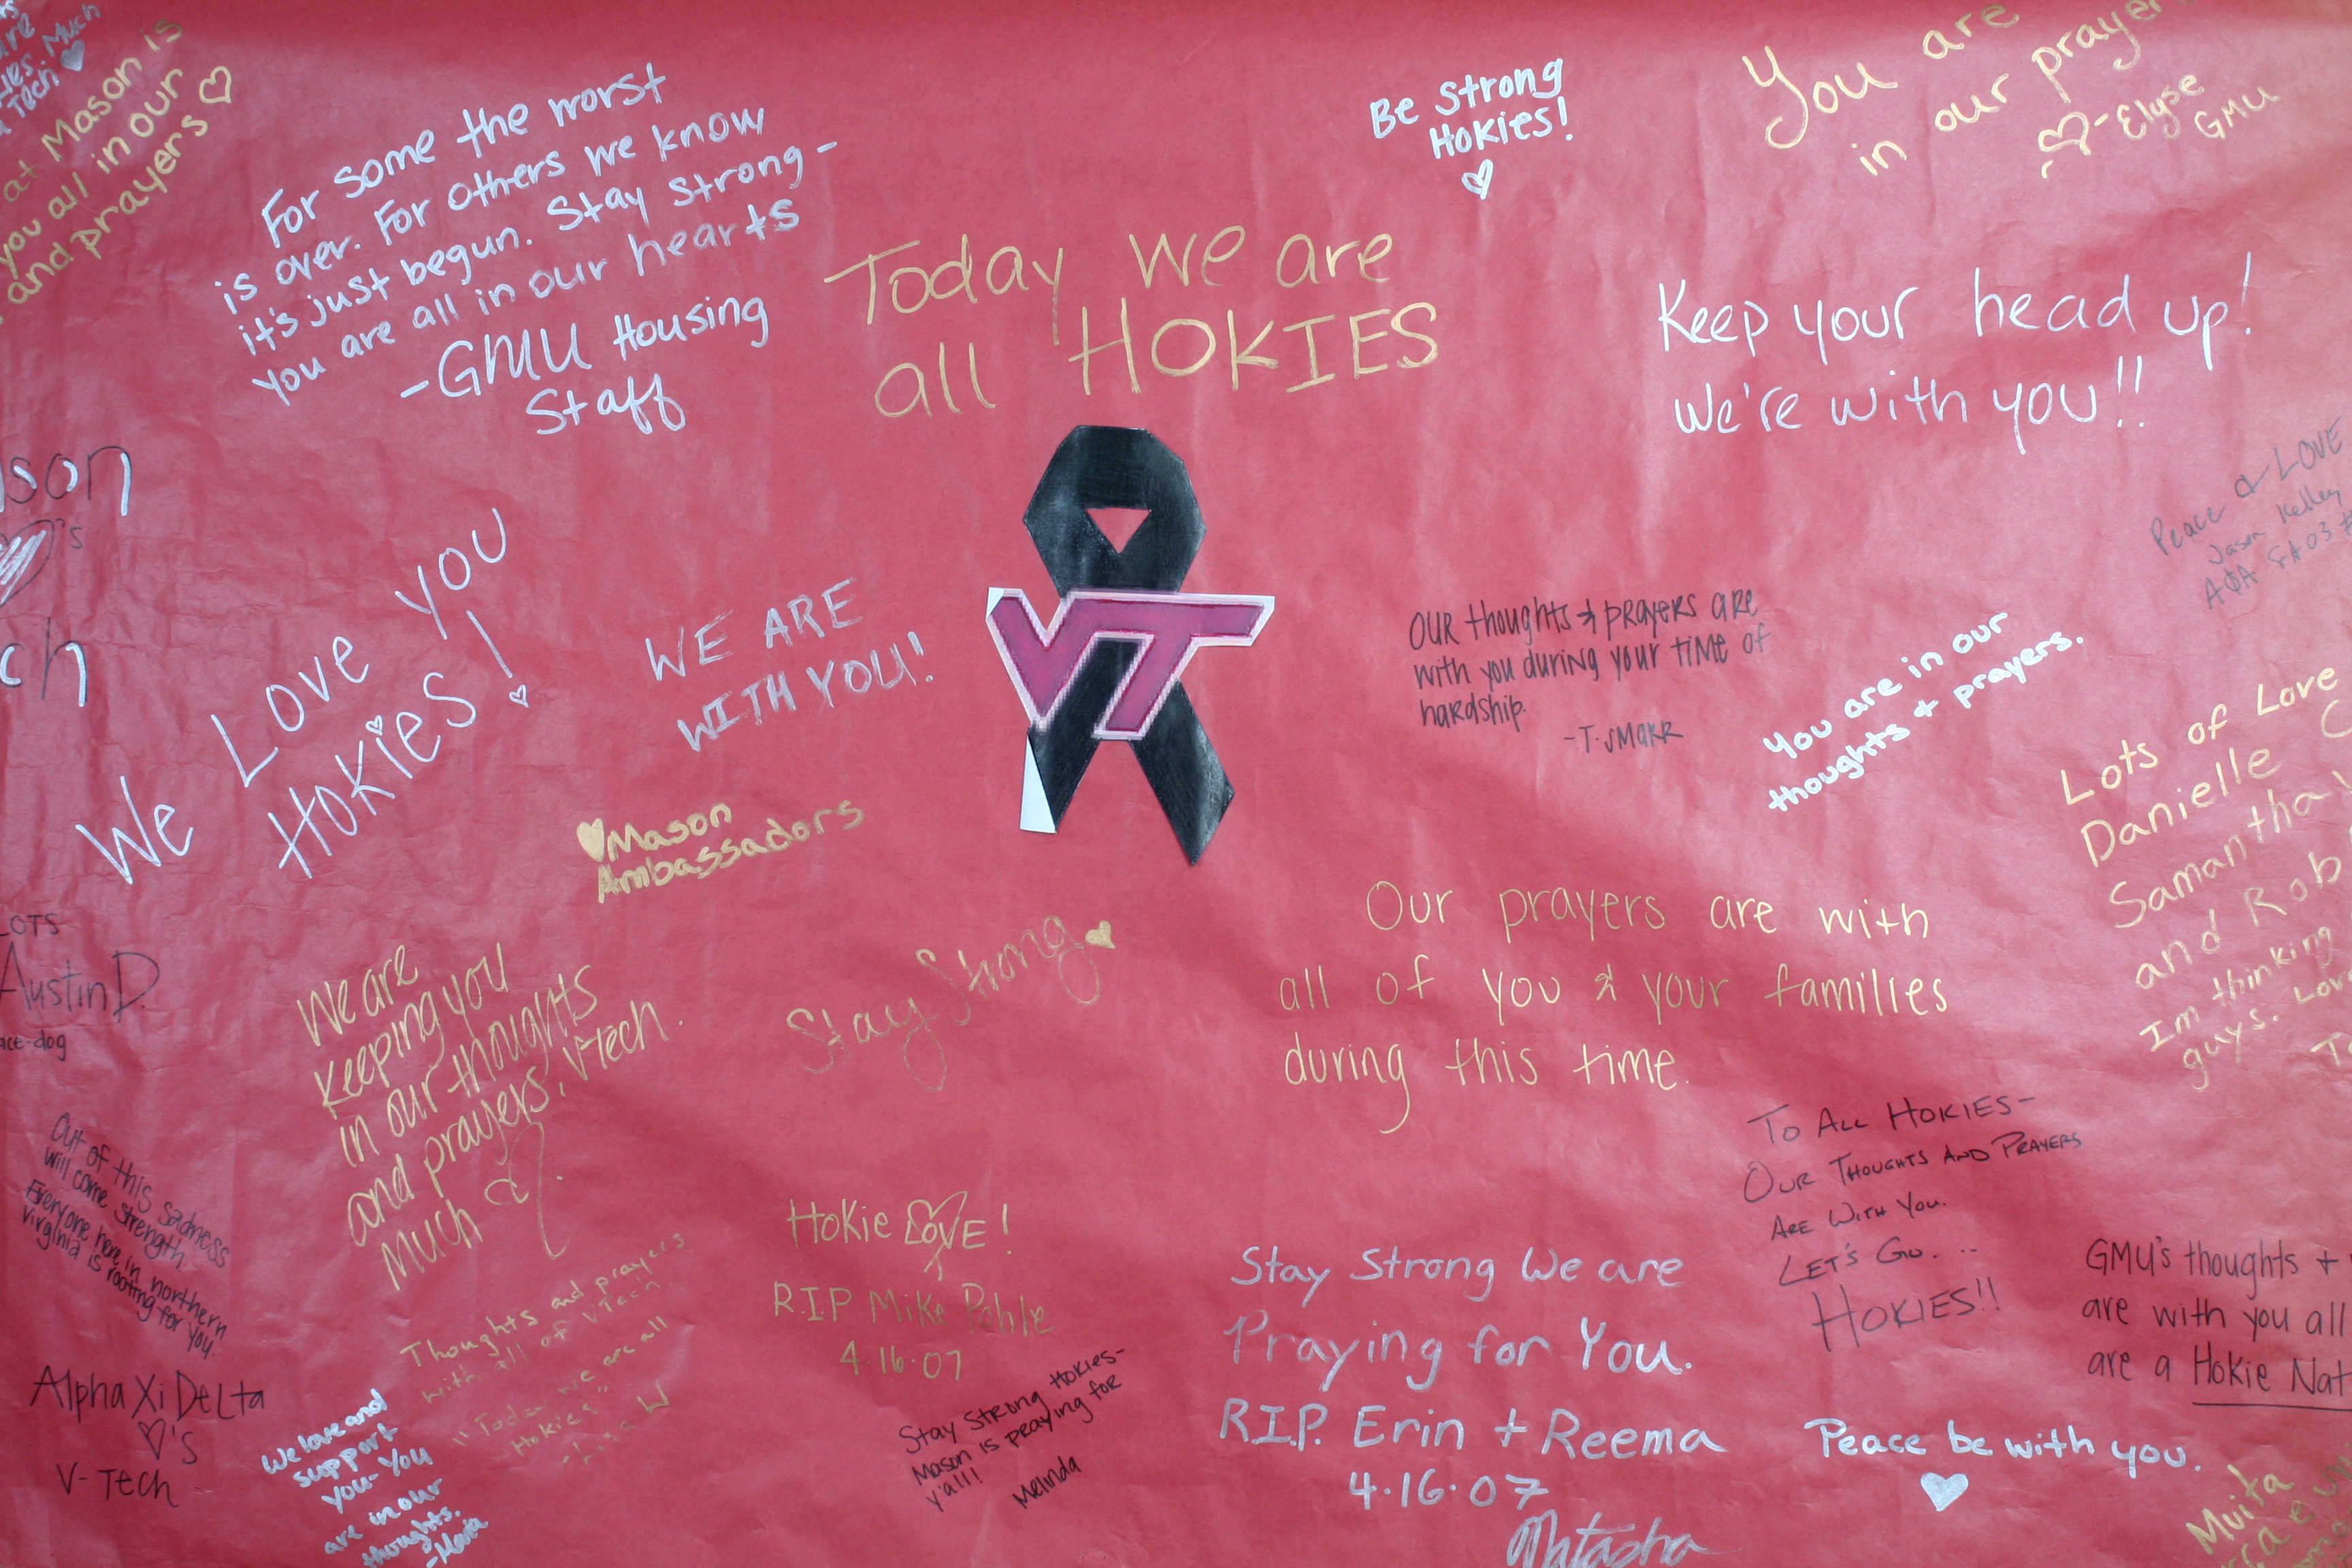 are
Much
Tech
at Mason is
you all in our
and prayers
For some the worst
is over. For others we know
it's just begun. Stay strong-
You are all in our hearts
-GMU Housing
Staff
Be Strong
Hokies!
You are
in our prayers
-Elyse
GMU
Today we are
all HOKIES
Keep your head up!
We're with you!!
Peace & LOVE
Jason Kelley
AΦA
son
's
ch
We Love You
Hokies!
WE ARE
WITH YOU!
VT
Our thoughts & prayers are
with you during your time of
hardship.
-T. SMARR
You are in our
thoughts + prayers.
Lots of Love
Danielle C
Samantha
and Rob
Im thinking
guys. Lov
Mason
Ambassadors
LOTS
Austin D.
ace-dog
We are
keeping you
in our thoughts
and prayers, V-Tech.
Much
Stay Strong
Our prayers are with
all of you & your families
during this time.
To All Hokies-
Our Thoughts and Prayers
Are With You.
Let's Go...
Hokies!!
Out of this sadness
will come strength.
Everyone here in northern
Virginia is rooting for you.
Hokie LOVE!
R.I.P Mike Pohle
4.16.07
Thoughts and prayers
with all of VTech.
"Today we are all
Hokies"
-Lisa W
Stay Strong We are
Praying for You.
R.I.P. Erin + Reema
4.16.07
Natasha
GMU's thoughts +
are with you all
are a Hokie Nat
Alpha Xi Delta
's
V-Tech
We love and
support
you- You
are in our
thoughts.
-Maria
Stay Strong Hokies-
Mason is praying for
y'all!
Melinda
Peace be with you.
Muita